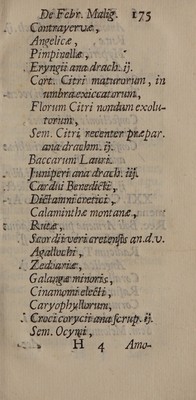 De Febr. Malig. 175
Contrayervæ,
Angelicæ,
Pimpinellæ,
Eryngii ana drach. ij.
Cort. Citri maturarum, in
umbra exiccatorum,
Florum Citri nondum exolu-
torum,
Sem. Citri recenter præpar.
ana drachm. ij.
Baccarum Lauri.
Juniperi ana drach. iij.
Cardui Benedicti,
Dictamni cretici,
Calaminthæ montanæ,
Rutæ,
Scordii veri cretensis an.d.v.
Agallochi,
Zedoariæ,
Galangæ minoris,
Cinamomi electi,
Caryophyllorum,
Croci corycii ana scrup. ij.
Sem. Ocymi,
H 4 Amo-